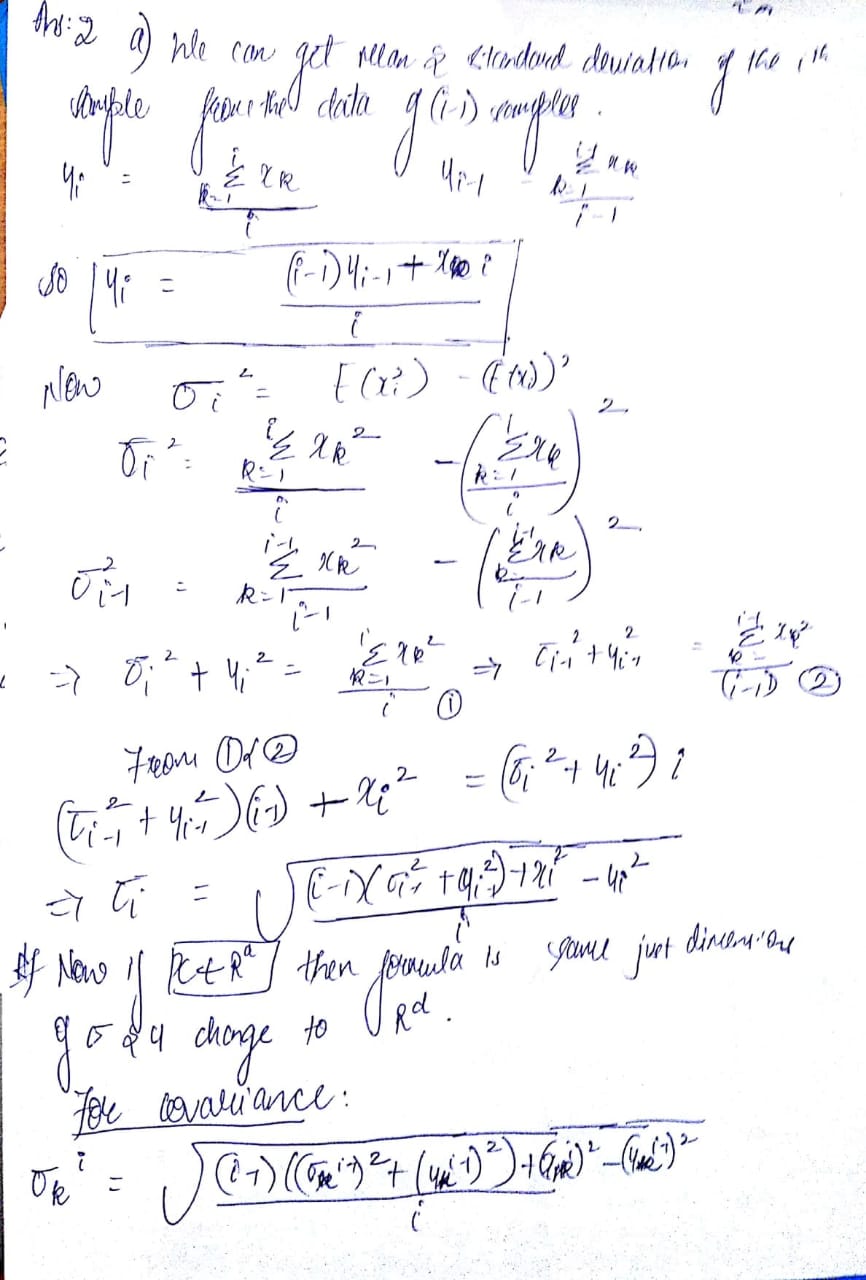 Ans:2 a) We can get mean & standard deviation of the ith
sample from the data of (i-1) samples.
μi = Σ_{k=1}^{i} xk / i    μi-1 = Σ_{k=1}^{i-1} xk / i-1
so μi = (i-1)μi-1 + xi / i
Now σi² = E(xi²) - (E(x))²
σi² = Σ_{k=1}^{i} xk² / i - (Σ_{k=1}^{i} xk / i)²
σ²i-1 = Σ_{k=1}^{i-1} xk² / i-1 - (Σ_{k=1}^{i-1} xk / i-1)²
⇒ σi² + μi² = Σ_{k=1}^{i} xk² / i ① ⇒ σi-1² + μi-1² = Σ_{k=1}^{i-1} xk² / (i-1) ②
From ① & ②
(σi-1² + μi-1²)(i-1) + xi² = (σi² + μi²) i
⇒ σi = √((i-1)(σi-1² + μi-1²) + xi² / i - μi²)
Now if x ∈ R^d then formula is same just dimensions
of σ & μ change to R^d.
For covariance:
σk^i = √((i-1)((σk^{i-1})² + (μk^{i-1})²) + (xk^i)² - (μk^{i-1})² / i)